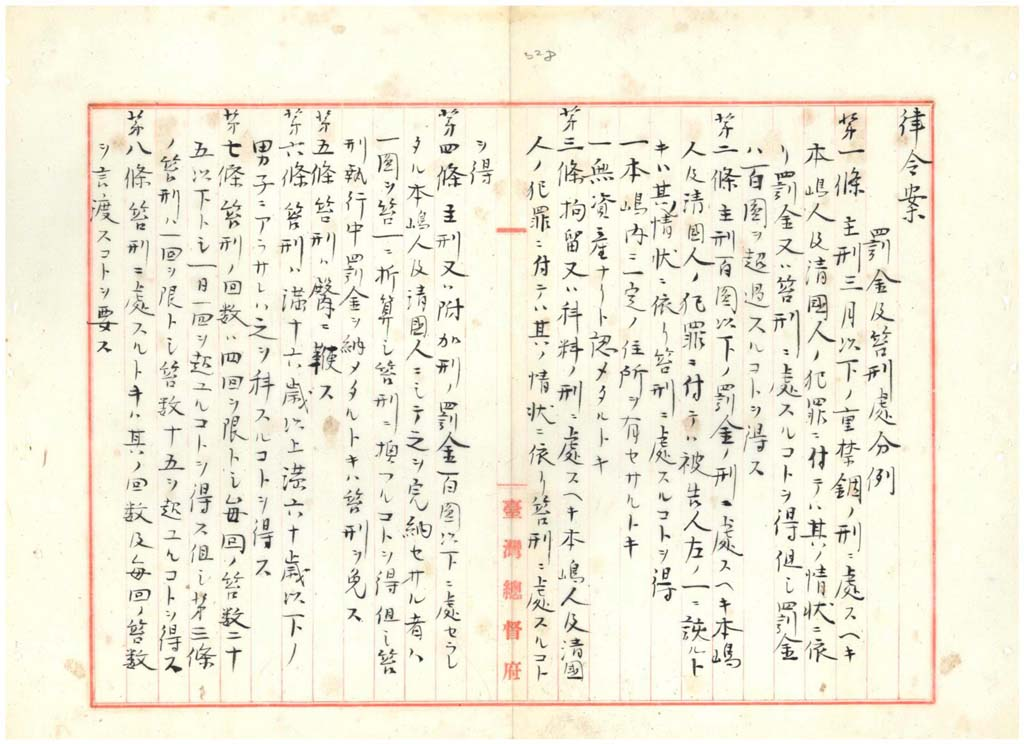 528
律令案
罰金及笞刑處分例
第一條 主刑三月以下ノ重禁錮ノ刑ニ處スヘキ
本嶋人及清國人ノ犯罪ニ付テハ其ノ情状ニ依
リ罰金又ハ笞刑ニ處スルコトヲ得但シ罰金
ハ百圓ヲ超過スルコトヲ得ス
第二條 主刑百圓以下ノ罰金ノ刑ニ處スヘキ本嶋
人及清國人ノ犯罪ニ付テハ被告人左ノ一ニ該ルト
キハ其情状ニ依リ笞刑ニ處スルコトヲ得
一本嶋内ニ一定ノ住所ヲ有セサルトキ
一無資産ナリト認メタルトキ
第三條拘留又ハ科料ノ刑ニ處スヘキ本嶋人及清國
人ノ犯罪ニ付テハ其ノ情状ニ依リ笞刑ニ處スルコト
ヲ得
臺灣總督府
第四條 主刑又ハ附加刑ノ罰金百圓以下ニ處セラレ
タル本嶋人及清國人ニシテ之ヲ完納セサル者ハ
一圓ヲ笞一ニ折算シ笞刑ニ換フルコトヲ得但シ笞
刑執行中罰金ヲ納メタルトキハ笞刑ヲ免ス
第五條笞刑ハ臀ニ鞭ス
第六條 笞刑ハ滿十六歳以上滿六十歳以下ノ
男子ニアラサレハ之ヲ科スルコトヲ得ス
第七條笞刑ノ回数ハ四回ヲ限トシ毎回ノ笞数二十
五以下トシ一日一回ヲ超ユルコトヲ得ス但シ第三條
ノ笞刑ハ一回ヲ限トシ笞数十五ヲ超ユルコトヲ得ス
第八條笞刑ニ處スルトキハ其ノ回数及毎回ノ笞数
ヲ言渡スコトヲ要ス